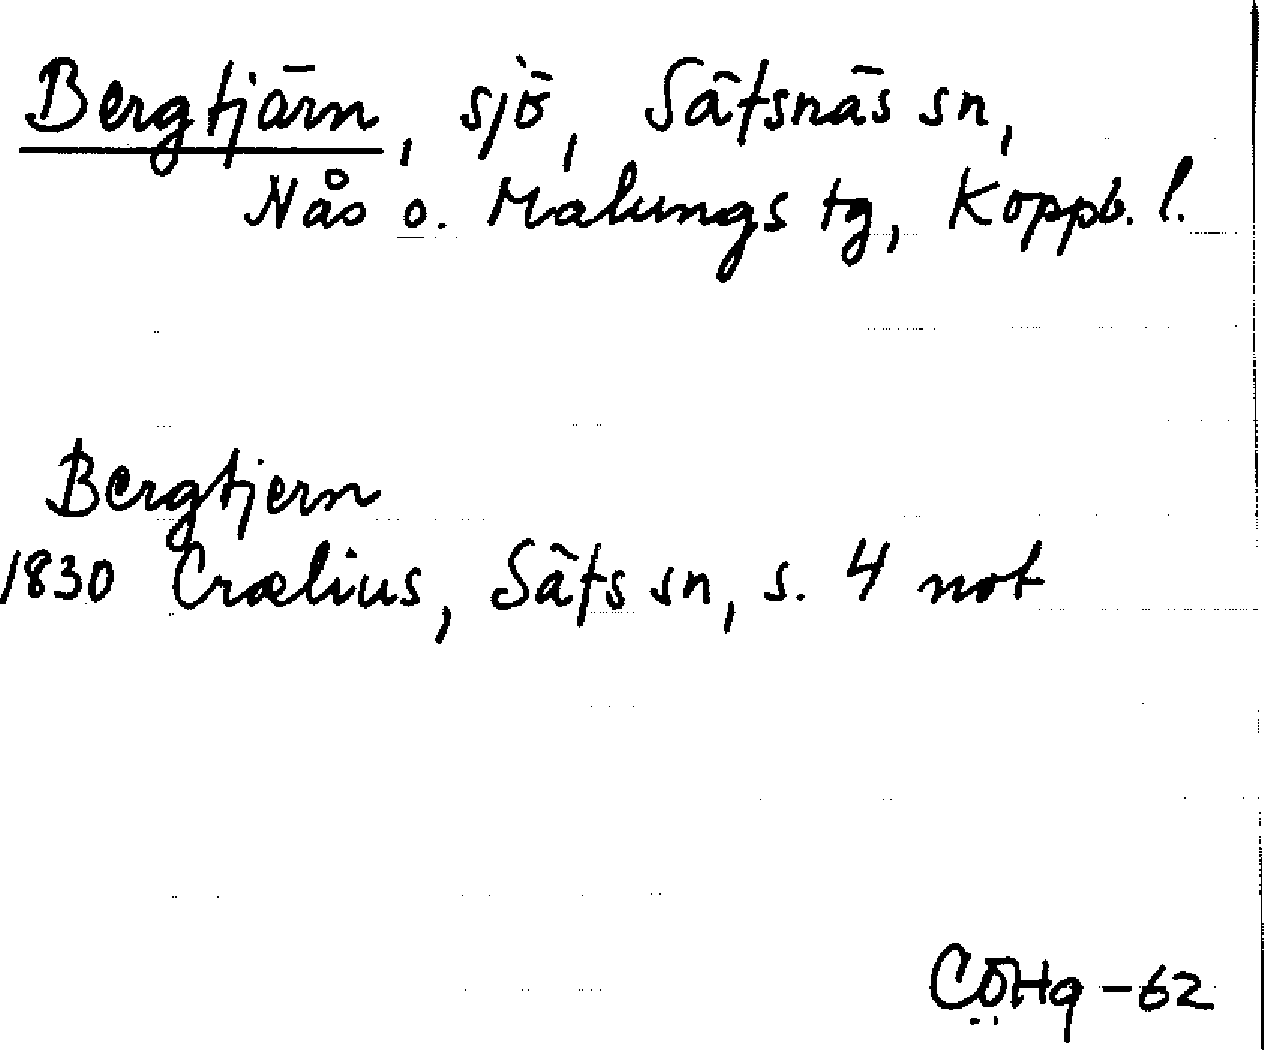 Bergtjärn, sjö, Säfsnäs sn,
Nås o. Malungs tg, Koppb. l.
Bergtjern
1830 Crælius, Säfs sn, s. 4 not
CÖHq -62